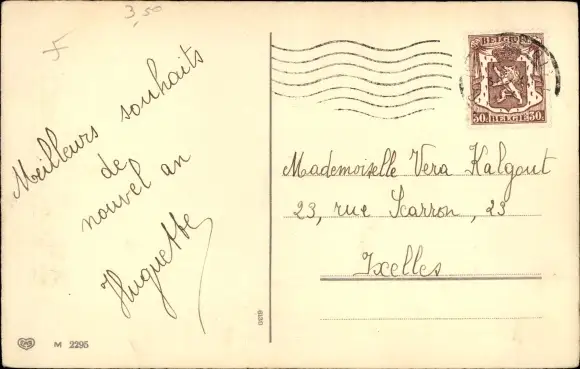 3,50
Meilleurs souhaits
de
nouvel an
Huguette
BELGIQUE
30. BELGIE 30.
Mademoiselle Vera Kalgout
23, rue Scarron, 23
Ixelles
M 2295